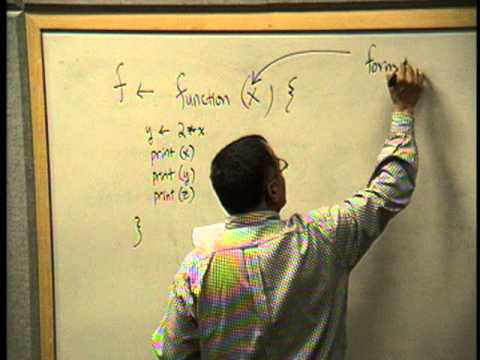 f ← function (x) {
y ← 2*x
print (x)
print (y)
print (z)
}